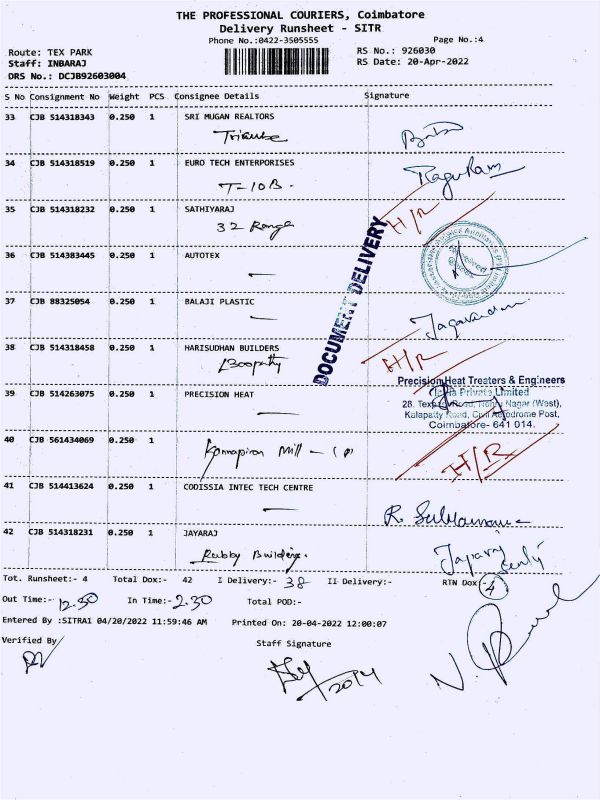 THE PROFESSIONAL COURIERS, Coimbatore
Delivery Runsheet - SITR
Phone No.:0422-3505555 Page No.:4
Route: TEX PARK RS No.: 926030
Staff: INBARAJ RS Date: 20-Apr-2022
DRS No.: DCJB92603004
S No Consignment No Weight PCS Consignee Details Signature
33 CJB 514318343 0.250 1 SRI MUGAN REALTORS
34 CJB 514318519 0.250 1 EURO TECH ENTERPORISES
T-10B. RaguRam
35 CJB 514318232 0.250 1 SATHIYARAJ H/R
32 Range
36 CJB 514383445 0.250 1 AUTOTEX
DOCUMENT DELIVERY
37 CJB 88325054 0.250 1 BALAJI PLASTIC
38 CJB 514318458 0.250 1 HARISUDHAN BUILDERS H/R
Boopathy
39 CJB 514263075 0.250 1 PRECISION HEAT
Precision Heat Treaters & Engineers
India Private Limited
28, Texpark Road, Nehru Nagar (West),
Kalapatty Road, Civil Aerodrome Post,
Coimbatore- 641 014.
40 CJB 561434069 0.250 1
Mill H/R
41 CJB 514413624 0.250 1 CODISSIA INTEC TECH CENTRE
42 CJB 514318231 0.250 1 JAYARAJ
Rubby Building.
Tot. Runsheet:- 4 Total Dox:- 42 I Delivery:- 38 II Delivery:- RTN Dox:- 4
Out Time:- 12.50 In Time:- 2.30 Total POD:-
Entered By :SITRA1 04/20/2022 11:59:46 AM Printed On: 20-04-2022 12:00:07
Verified By Staff Signature